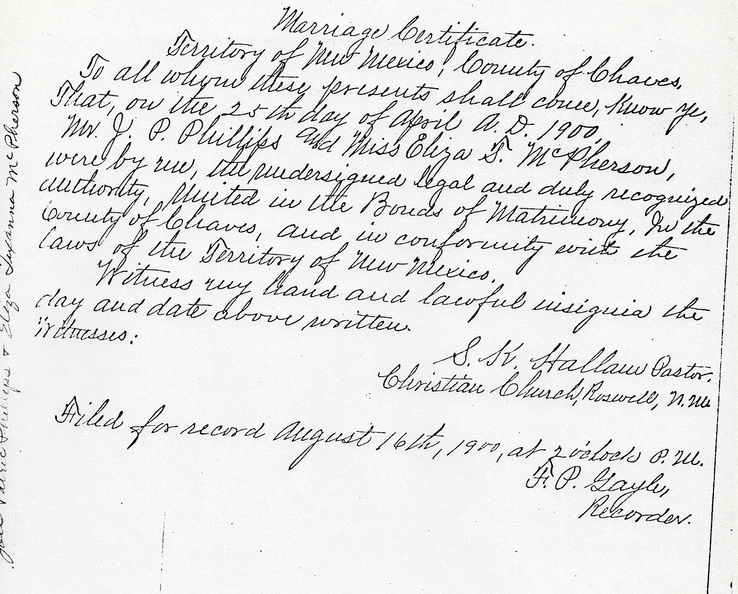 Marriage Certificate.
Territory of New Mexico, County of Chaves,
To all whom these presents shall come, Know Ye,
That, on the 25th day of April A.D. 1900,
Mr. J. P. Phillips and Miss Eliza T. McPherson,
were by me, the undersigned legal and duly recognized
authority, United in the Bonds of Matrimony, In the
County of Chaves, and in conformity with the
laws of the Territory of New Mexico.
Witness my hand and lawful insignia the
day and date above written.
Witnesses:
S. K. Hallam Pastor.
Christian Church, Roswell, N.M.
Filed for record August 16th, 1900, at 2 o'clock P.M.
F. P. Gayle,
Recorder.
Phillips & Eliza Texanna McPherson